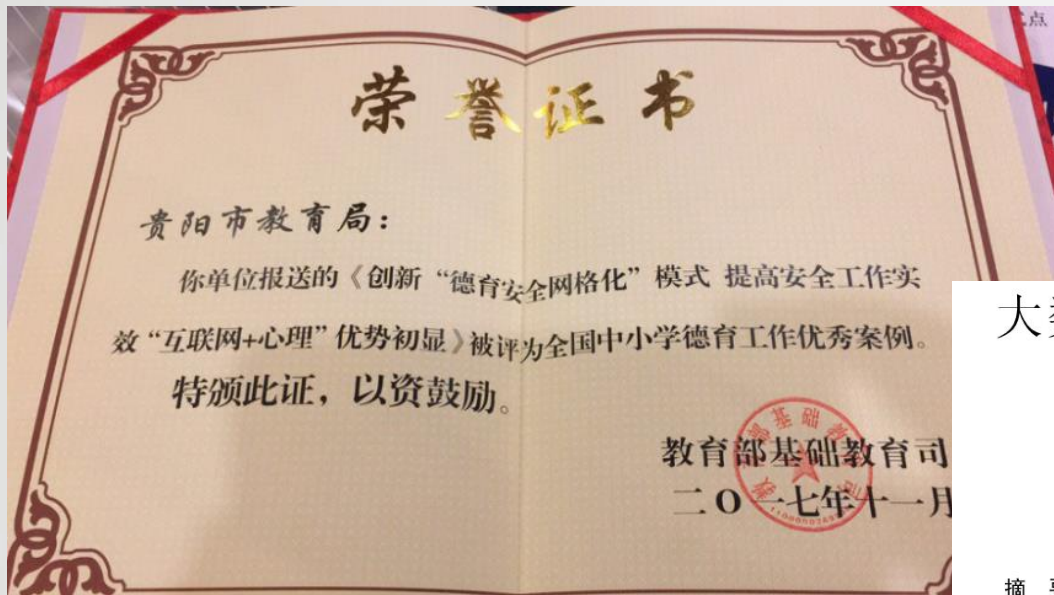 荣誉证书
贵阳市教育局：
你单位报送的《创新“德育安全网格化”模式 提高安全工作实
效“互联网+心理”优势初显》被评为全国中小学德育工作优秀案例。
特颁此证，以资鼓励。
教育部基础教育司
二〇一七年十一月
点
大
摘